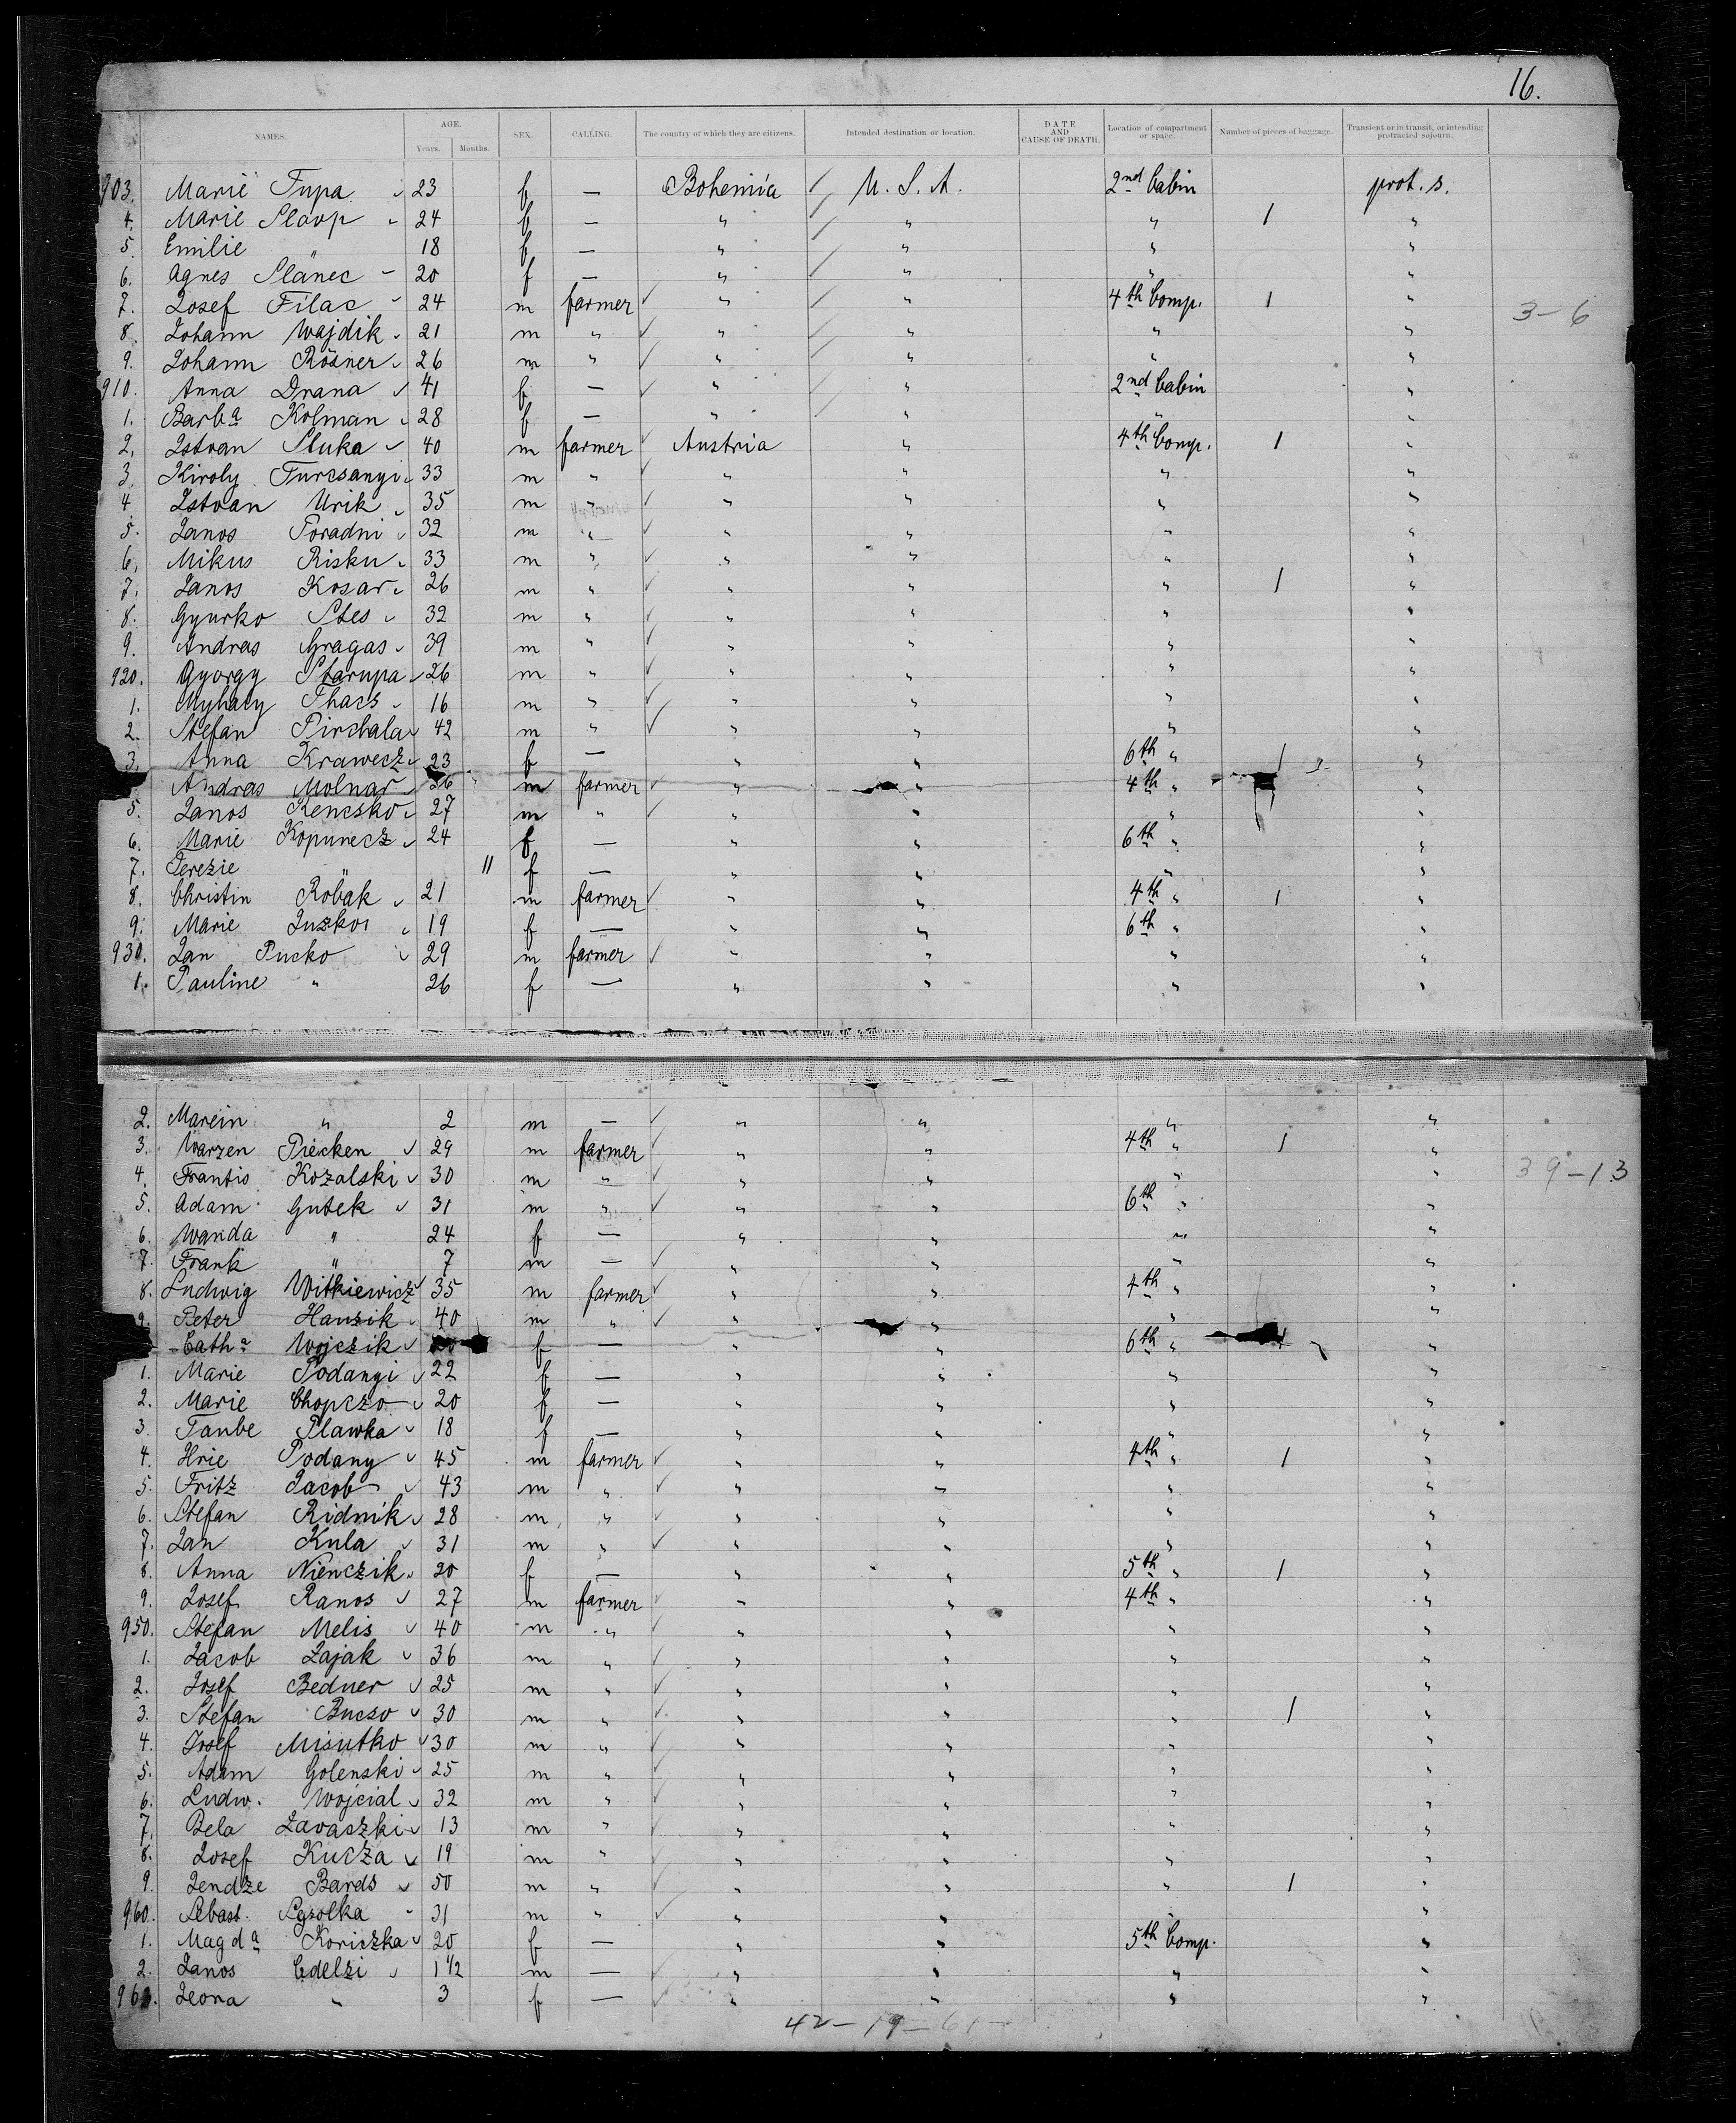 16.
NAMES. AGE. SEX. CALLING. The country of which they are citizens. Intended destination or location. DATE AND CAUSE OF DEATH. Location of compartment or space. Number of pieces of baggage. Transient or in transit, or intending protracted sojourn.
Years. Months.
903. Marie Tupa 23 f — Bohemia U. S. A. 2nd Cabin prot. s.
4. Marie Slavp 24 f — " " " 1 "
5. Emilie " 18 f — " " " "
6. Agnes Slanec 20 f — " " " "
7. Josef Filac 24 m farmer " " 4th Comp. 1 "
3 – 6
8. Johann Wajdik 21 m " " " " "
9. Johann Rösner 26 m " " " " "
910. Anna Drana 41 f — " " 2nd Cabin "
1. Barba Kolman 28 f — " " " "
2. Istvan Stuka 40 m farmer Austria " 4th Comp. 1 "
3. Kiroly Turcsanyi 33 m " " " " "
4. Istvan Urik 35 m " " " " "
5. Janos Poradni 32 m " " " " "
6. Mikus Risku 33 m " " " " "
7. Janos Kosar 26 m " " " " 1 "
8. Gyurko Stes 32 m " " " " "
9. Andras Gragas 39 m " " " " "
920. Gyorgy Starupa 26 m " " " " "
1. Myhaly Thacs 16 m " " " " "
2. Stefan Pirchala 42 m " " " " "
3. Anna Krawecz 23 f — " " 6th " 1 "
Andras Molnar 26 m farmer " " 4th " "
5. Janos Kencsko 27 m " " " " "
6. Marie Kopunecz 24 f — " " 6th " "
7. Terezie " 11 f — " " " "
8. Christin Robak 21 m farmer " " 4th " 1 "
9. Marie Juzkoi 19 f — " " 6th " "
930. Jan Pucko 29 m farmer " " " "
1. Pauline " 26 f — " " " "
2. Marcin " 2 m — " " " "
3. Warzen Piecken 29 m farmer " " 4th " 1 "
4. Frantis Kozalski 30 m " " " " "
39 – 13
5. Adam Gutek 31 m " " " 6th " "
6. Wanda " 24 f — " " " "
7. Frank " 7 m — " " " "
8. Ludwig Witkiewicz 35 m farmer " " 4th " "
9. Peter Hanzik 40 m " " " " "
Catha Wojczik f — " " 6th " "
1. Marie Podanyi 22 f — " " " "
2. Marie Chopczo 20 f — " " " "
3. Taube Plawka 18 f — " " " "
4. Hrie Podany 45 m farmer " " 4th " 1 "
5. Fritz Jacob 43 m " " " " "
6. Stefan Ridnik 28 m " " " " "
7. Jan Kula 31 m " " " " "
8. Anna Nienczik 20 f — " " 5th " 1 "
9. Josef Ranos 27 m farmer " " 4th " "
950. Stefan Melis 40 m " " " " "
1. Jacob Zajak 36 m " " " " "
2. Josef Bedner 25 m " " " " "
3. Stefan Bucso 30 m " " " " 1 "
4. Josef Misutko 30 m " " " " "
5. Adam Golenski 25 m " " " " "
6. Ludw. Wojcial 32 m " " " " "
7. Bela Zavaczki 13 m " " " " "
8. Josef Kucza 19 m " " " " "
9. Jendze Bards 50 m " " " " 1 "
960. Sebast. Pgsolka 31 m " " " " "
1. Magda Koriczka 20 f — " " 5th Comp. "
2. Janos Edelzi 1 1/2 m — " " " "
963. Ileona " 3 f — " " " "
42 – 19 – 61